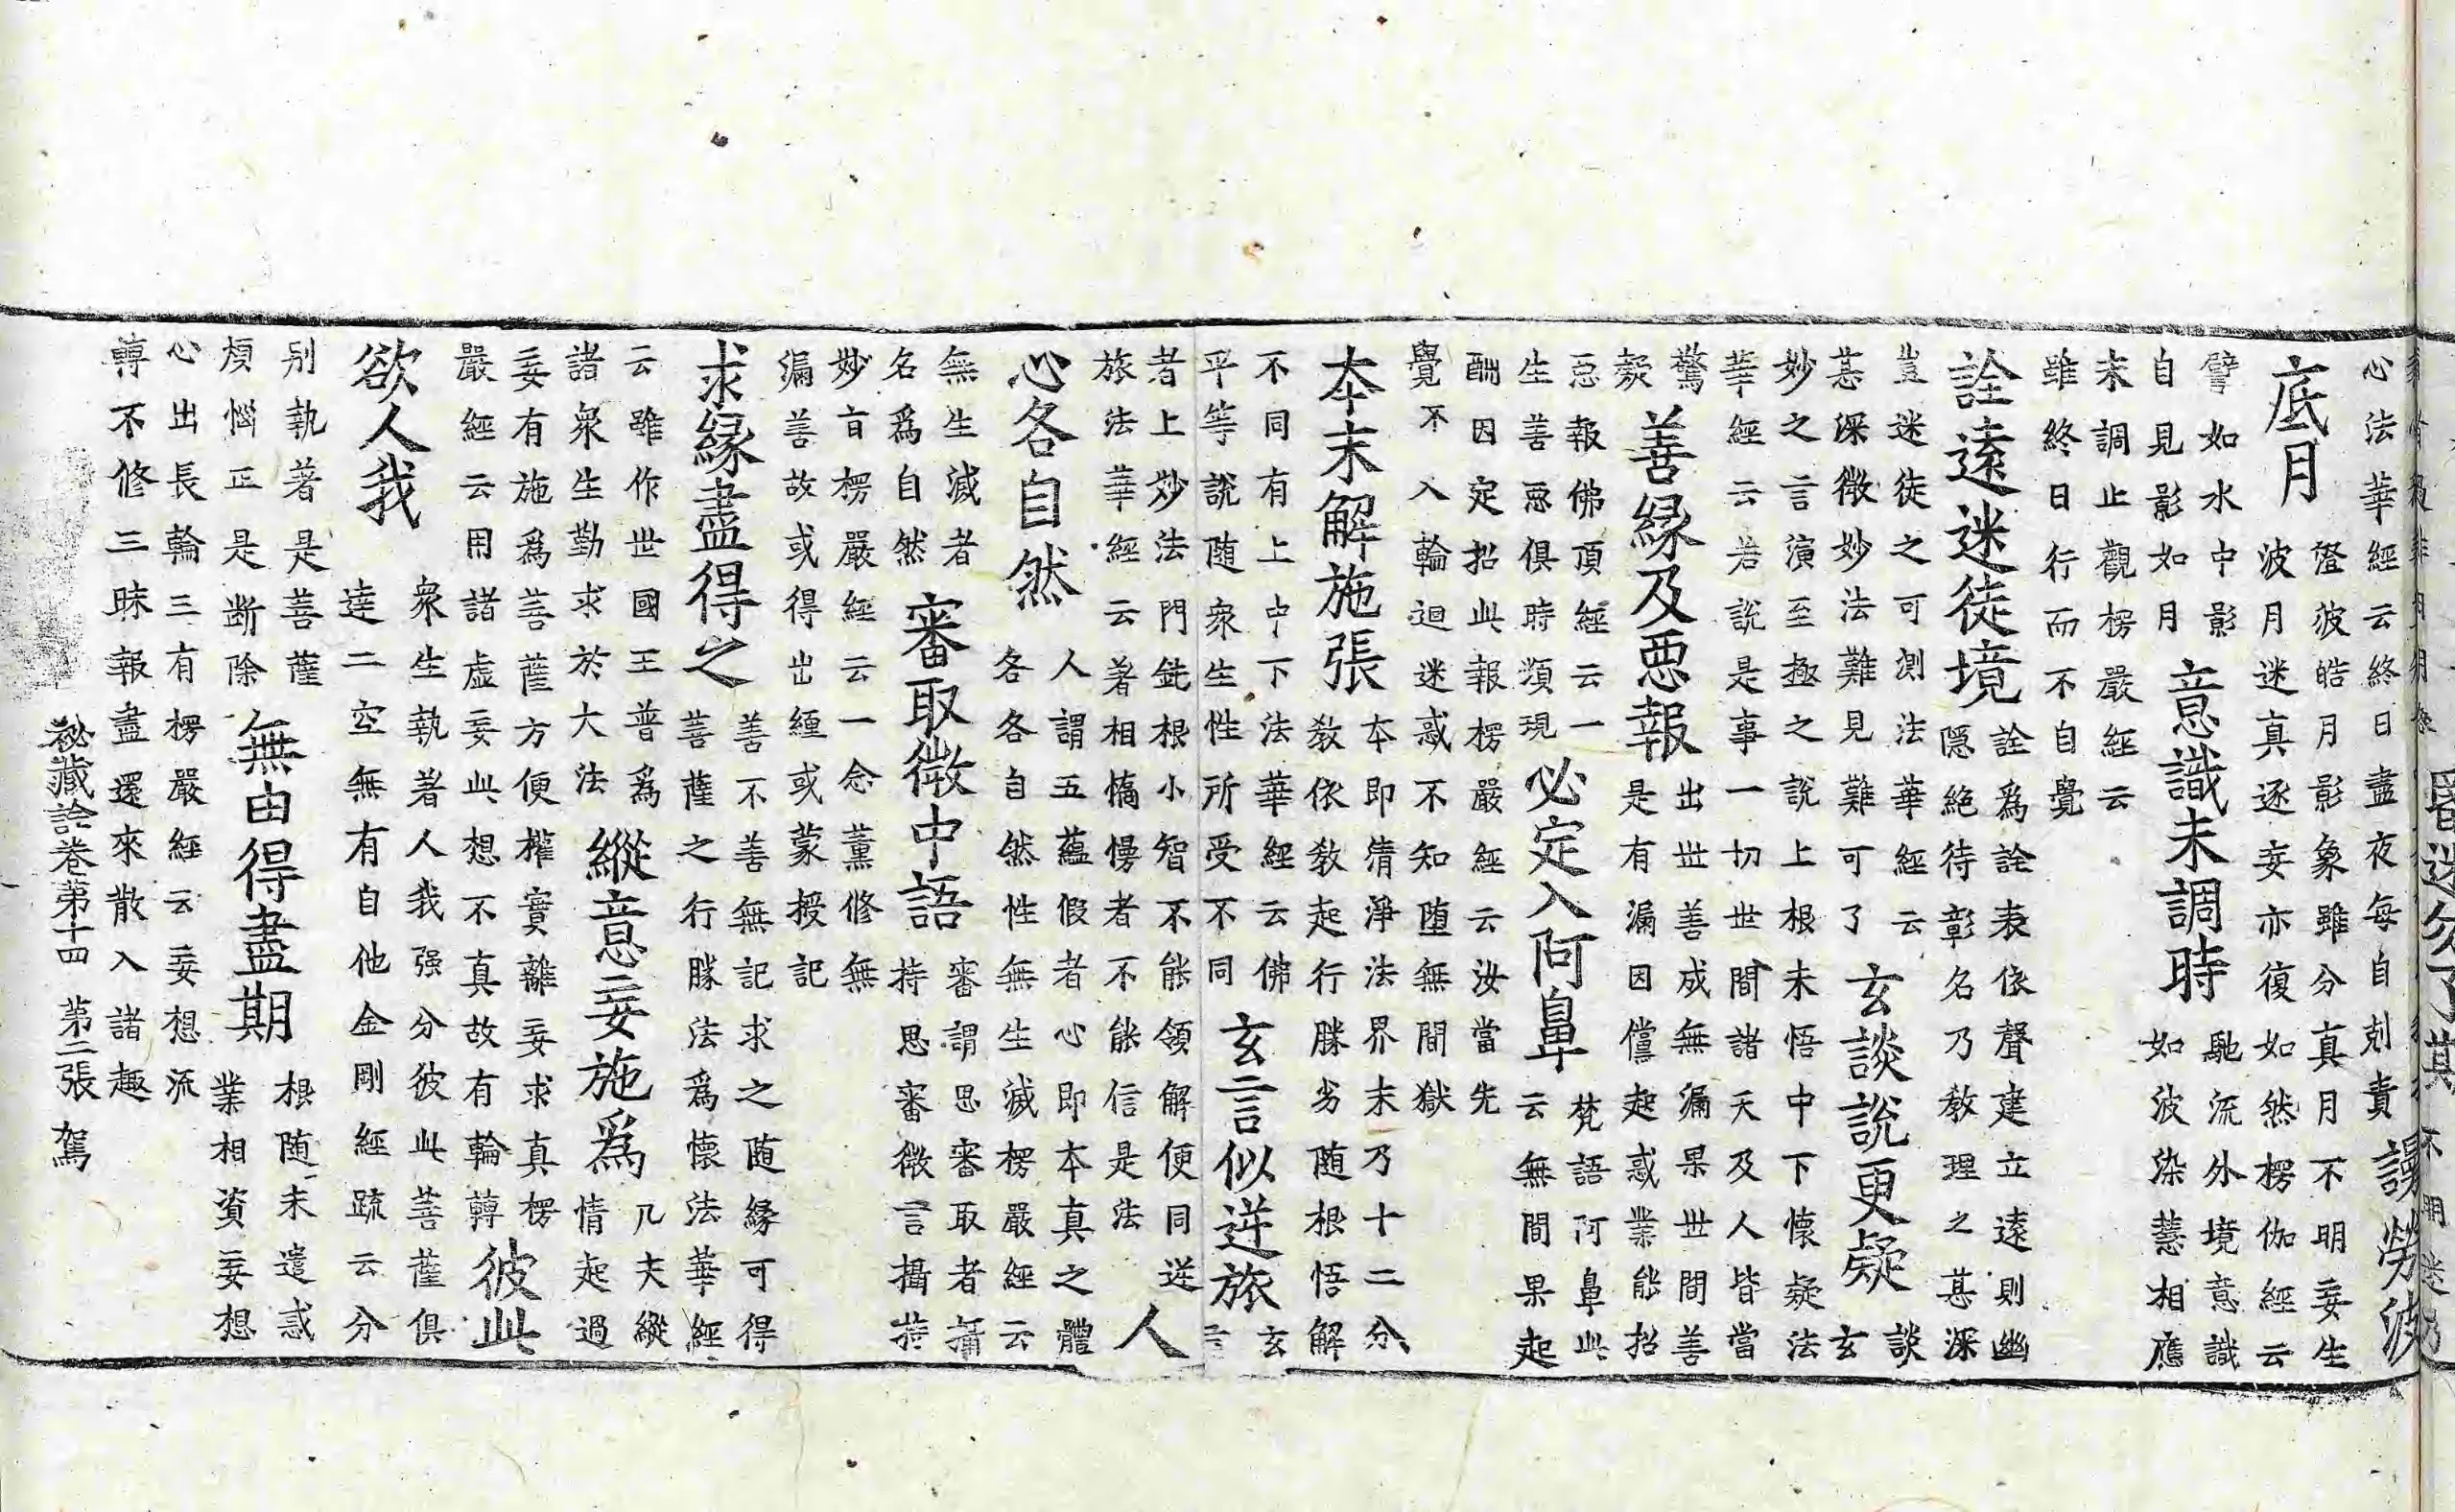 心法華經云終日盡夜每自剋責
誤勞波
底月
澄彼皓月影象雖分真月不明妄生
波月迷真逐妄亦復如然楞伽經云
譬如水中影
自見影如月
意識未調時
馳流外境意識
如波染慧相應
末調止觀楞嚴經云
雖終日行而不自覺
詮遠迷徒境
詮爲詮表依聲建立遠則幽
隱絶待彰名乃教理之甚深
豈迷徒之可測法華經云
甚深微妙法難見難可了
玄談說更疑
談
玄
妙之言演至極之說上根未悟中下懷疑法
華經云若說是事一切世間諸天及人皆當
驚
疑
善縁及惡報
出世善成無漏果世間善
是有漏因儻起惑業能招
惡報佛頂經云一
生善惡俱時頌現
必定入阿鼻
梵語阿鼻此
云無間果起
酬因定招此報楞嚴經云汝當先
覺不入輪迴迷惑不知墮無間獄
本末解施張
本即清淨法界末乃十二分
教依教起行勝劣随根悟解
不同有上中下法華經云佛
平等說随衆生性所受不同
玄言似逆旅
玄
言
者上妙法門鈍根小智不能領解便同逆
旅法華經云著相憍慢者不能信是法
人
心各自然
人謂五蘊假者心即本真之體
各各自然性無生滅楞嚴經云
無生滅者
名爲自然
審取微中語
審謂思審取者攝
持思審微言攝持
妙旨楞嚴經云一念薰修無
漏善故或得出纏或蒙授記
求緣盡得之
善不善無記求之随緣可得
菩薩之行勝法爲懷法華經
云雖作世國王普爲
諸衆生勤求於大法
縱意妄施爲
凡夫縱
情起過
妄有施爲菩薩方便權實離妄求真楞
嚴經云用諸虛妄此想不真故有輪轉
彼此
欲人我
衆生執著人我强分彼此菩薩俱
達二空無有自他金剛經疏云分
别執著是菩薩
煩惱正是斷除
無由得盡期
根随未遣惑
業相資妄想
心出長輪三有楞嚴經云妄想流
轉不修三昧報盡還來散入諸趣
秘藏詮卷第十四 第二張 駕